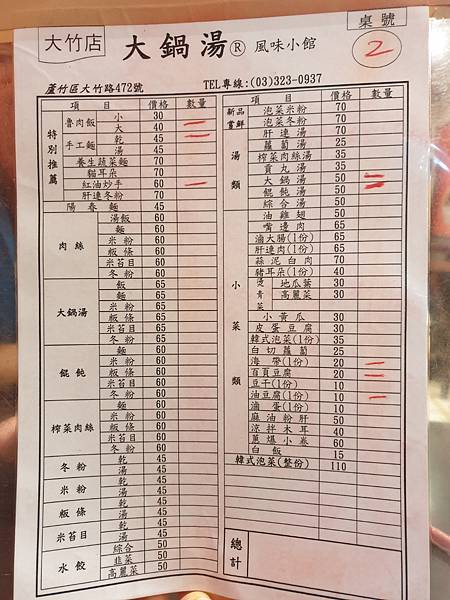 大竹店 大鍋湯® 風味小館 桌號 2
蘆竹區大竹路472號 TEL專線:(03)323-0937
項目 價格 數量
特別推薦
魯肉飯 小 30
大 40 一
手工麵 乾 45 一
湯 45
養生蔬菜麵 70
貓耳朵 70
紅油炒手 60 一
肝連冬粉 70
陽春麵 45
肉絲
湯飯 60
麵 60
米粉 60
粄條 60
米苔目 60
冬粉 60
大鍋湯
飯 65
麵 65
米粉 65
粄條 65
米苔目 65
冬粉 65
餛飩
麵 60
米粉 60
粄條 60
米苔目 60
冬粉 60
榨菜肉絲
麵 60
米粉 60
粄條 60
米苔目 60
冬粉 60
冬粉 乾 45
湯 45
米粉 乾 45
湯 45
粄條 乾 45
湯 45
米苔目 乾 45
湯 45
水餃 綜合 50
韭菜 50
高麗菜 50
項目 價格 數量
新品嘗鮮
泡菜米粉 70
泡菜冬粉 70
湯類
肝連湯 70
蘿蔔湯 25
榨菜肉絲湯 35
貢丸湯 35
大鍋湯 50 一
餛飩湯 50 一
綜合湯 50
小菜類
油雞翅 50
嘴邊肉 65
滷大腸(1份) 65
肝連肉(1份) 65
蒜泥白肉 70
豬耳朵(1份) 40
燙青菜 地瓜葉 30
高麗菜 30
小黃瓜 30
皮蛋豆腐 30
韓式泡菜(1份) 35
白切蘿蔔 25
海帶(1份) 20 一
百頁豆腐 20 一
豆干(1份) 10
油豆腐(1份) 10 一
滷蛋(1份) 10
麻油粉肝 50
涼拌木耳 40
蔥爆小卷 60
白飯 15
韓式泡菜(整份) 110
總計